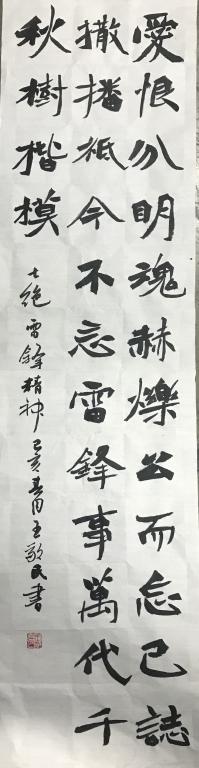 愛恨分明魂赫爍公而忘己誌
撒播祇今不忘雷鋒事萬代千
秋樹楷模
七絕 雷鋒精神 己亥春月王敬民書